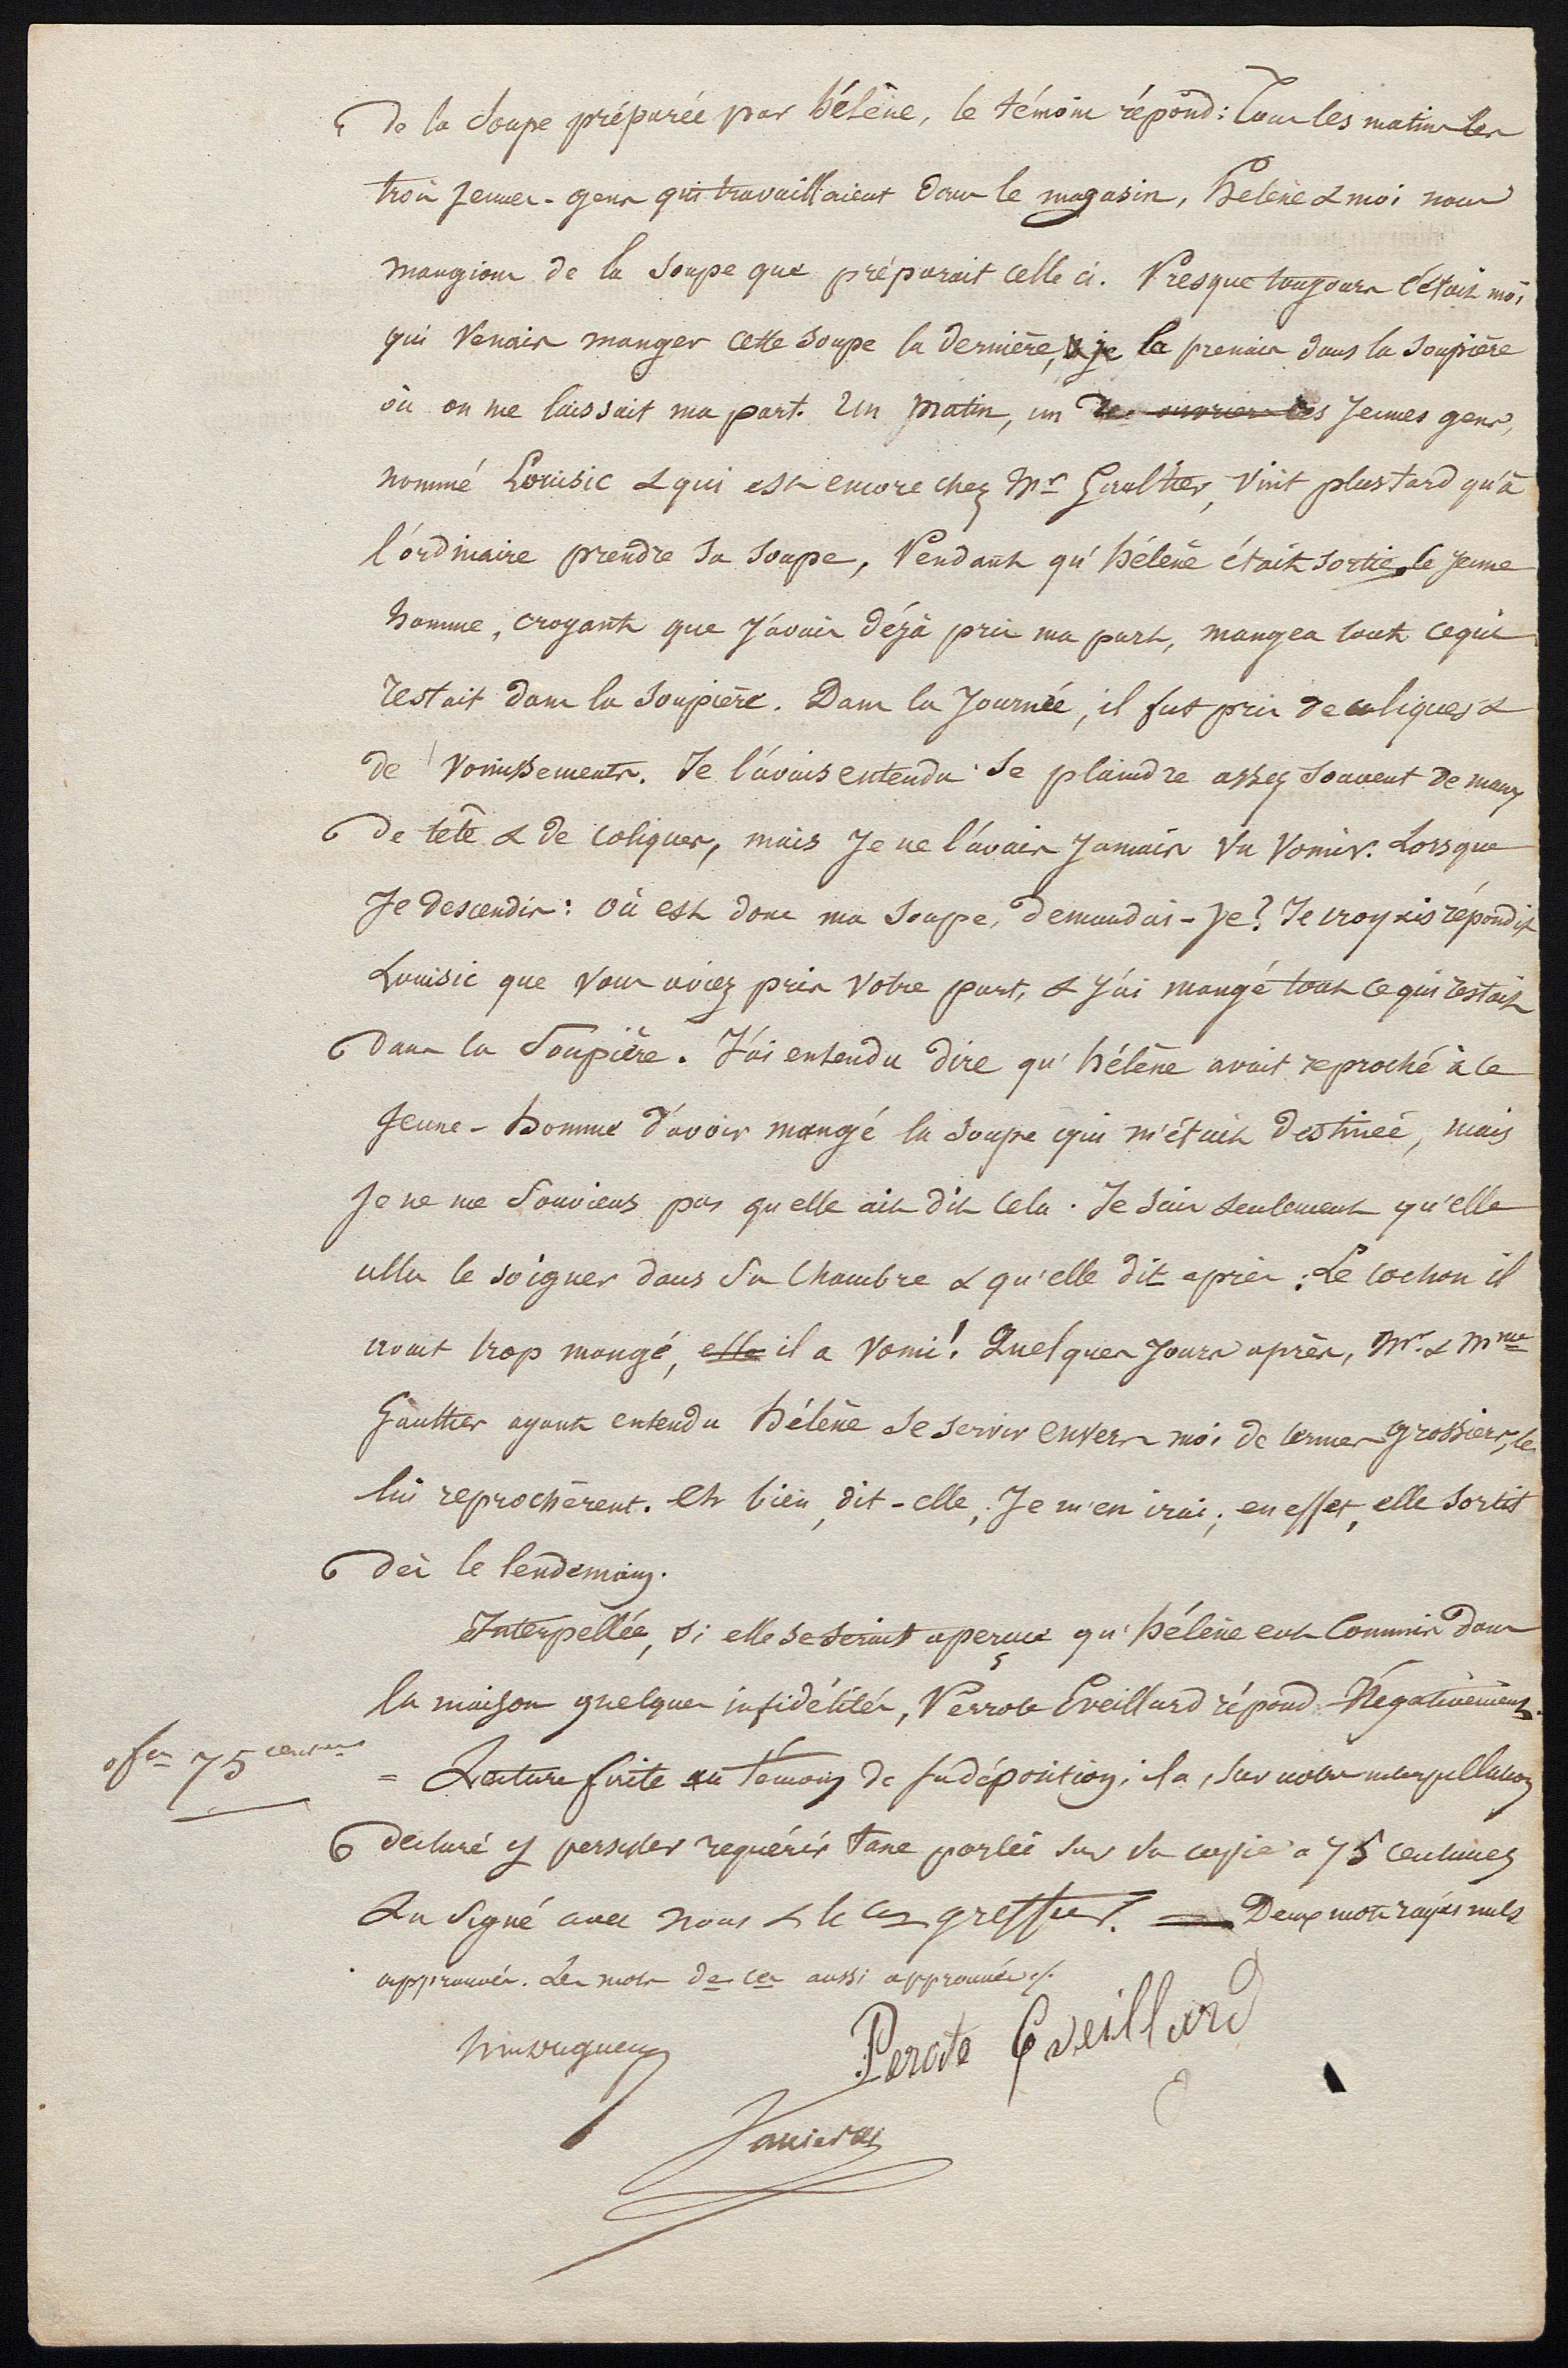 de la Soupe préparée par hélène, le témoin répond: Tous les matins les
trois jeunes-gens qui travaillaient dans le magasin, hélène & moi nous
mangions de la Soupe que préparait celle ci. Presque toujours c'était moi
qui venais manger cette soupe la dernière, & je la prenais dans la soupière
où on me laissait ma part. Un matin, un de ouvriers ces jeunes gens,
nommé Louisic & qui est encore chez Mr Gaultier, vint plus tard qu'à
l'ordinaire prendre sa soupe, Pendant qu'hélène était sortie, le jeune
homme, croyant que j'avais déjà pris ma part, mangea tout ce qui
restait dans la Soupière. Dans la journée, il fut pris de coliques &
de vomissements. Je l'avais entendu se plaindre assez souvent de maux
de tête & de coliques, mais je ne l'avais jamais vu vomir. Lorsque
je descendis: où est donc ma soupe, demandai-je? Je croyais répondit
Louisic que vous aviez pris votre part, & j'ai mangé tout ce qui restait
dans la Soupière. J'ai entendu dire qu'hélène avait reproché à ce
jeune-homme d'avoir mangé la soupe qui m'était destinée, mais
je ne me souviens pas qu'elle ait dit cela. Je sais seulement qu'elle
alla le soigner dans sa chambre & qu'elle dit après: Le cochon il
avait trop mangé, elle il a vomi! Quelques jours après, Mr. & Mme
Gaultier ayant entendu hélène se servir envers moi de termes grossiers, le
lui reprochèrent. Eh bien, dit-elle, je m'en irai; en effet, elle sortit
dès le lendemain.
Interpellée, si elle se serait aperçue qu'hélène eut commis dans
la maison quelques infidélités, Perrote Eveillard répond Négativement.
75 centimes
= Lecture faite au témoin de sa déposition, il a, sur notre interpellation
déclaré y persister requérir taxe portée sur sa copie à 75 centimes
& a signé avec nous & le Cs greffier. — Deux mots rayés nuls
approuvés. Les mots de ces aussi approuvés ./.
Perote Eveillard